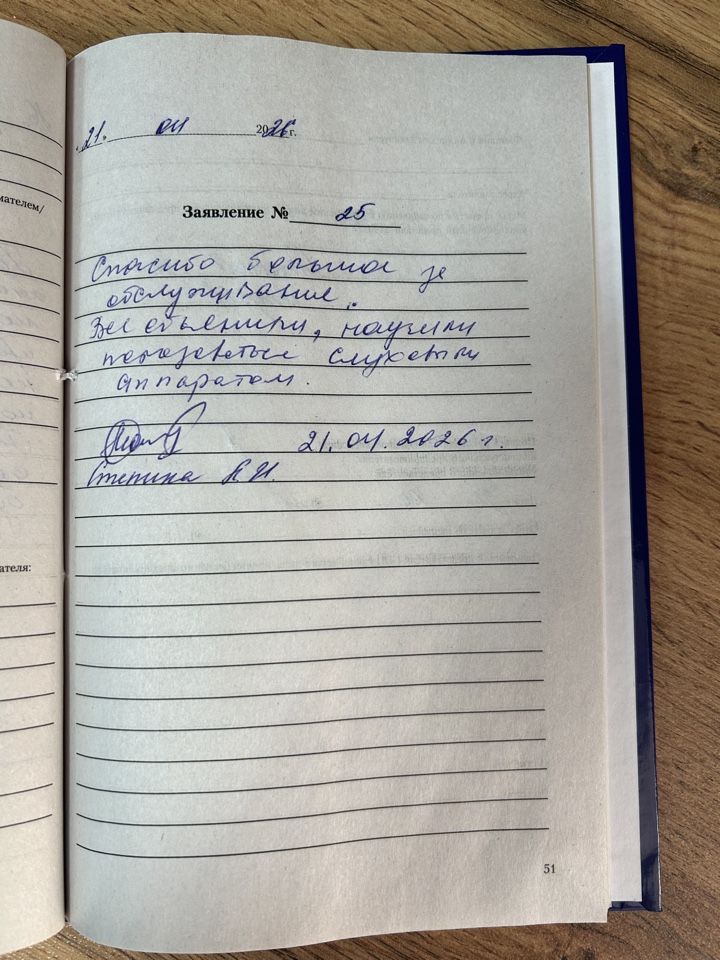 мателем/
ателя:
21. 04 2026 г.
Заявление № 25
Спасибо большое за
обслуживание.
Все объяснили, научили
пользоваться слуховым
аппаратом.
21.04.2026 г.
Степина К.И.
51